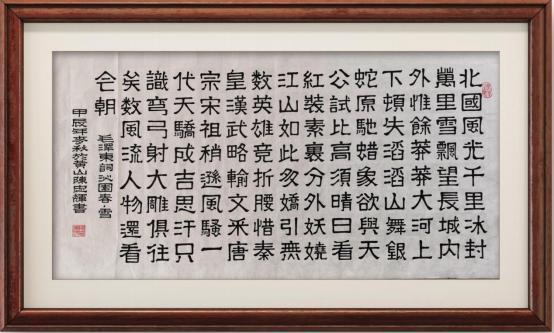 北國風光千里冰封
萬里雪飄望長城内
外惟餘莽莽大河上
下頓失滔滔山舞銀
蛇原馳蜡象欲與天
公試比高須晴日看
紅裝素裏分外妖嬈
江山如此多嬌引無
数英雄竞折腰惜秦
皇漢武略輸文采唐
宗宋祖稍遜風騷一
代天驕成吉思汗只
識弯弓射大雕俱往
矣数風流人物還看
今朝
毛澤東詞沁園春·雪
甲辰年麥秋於黄山陳忠輝書